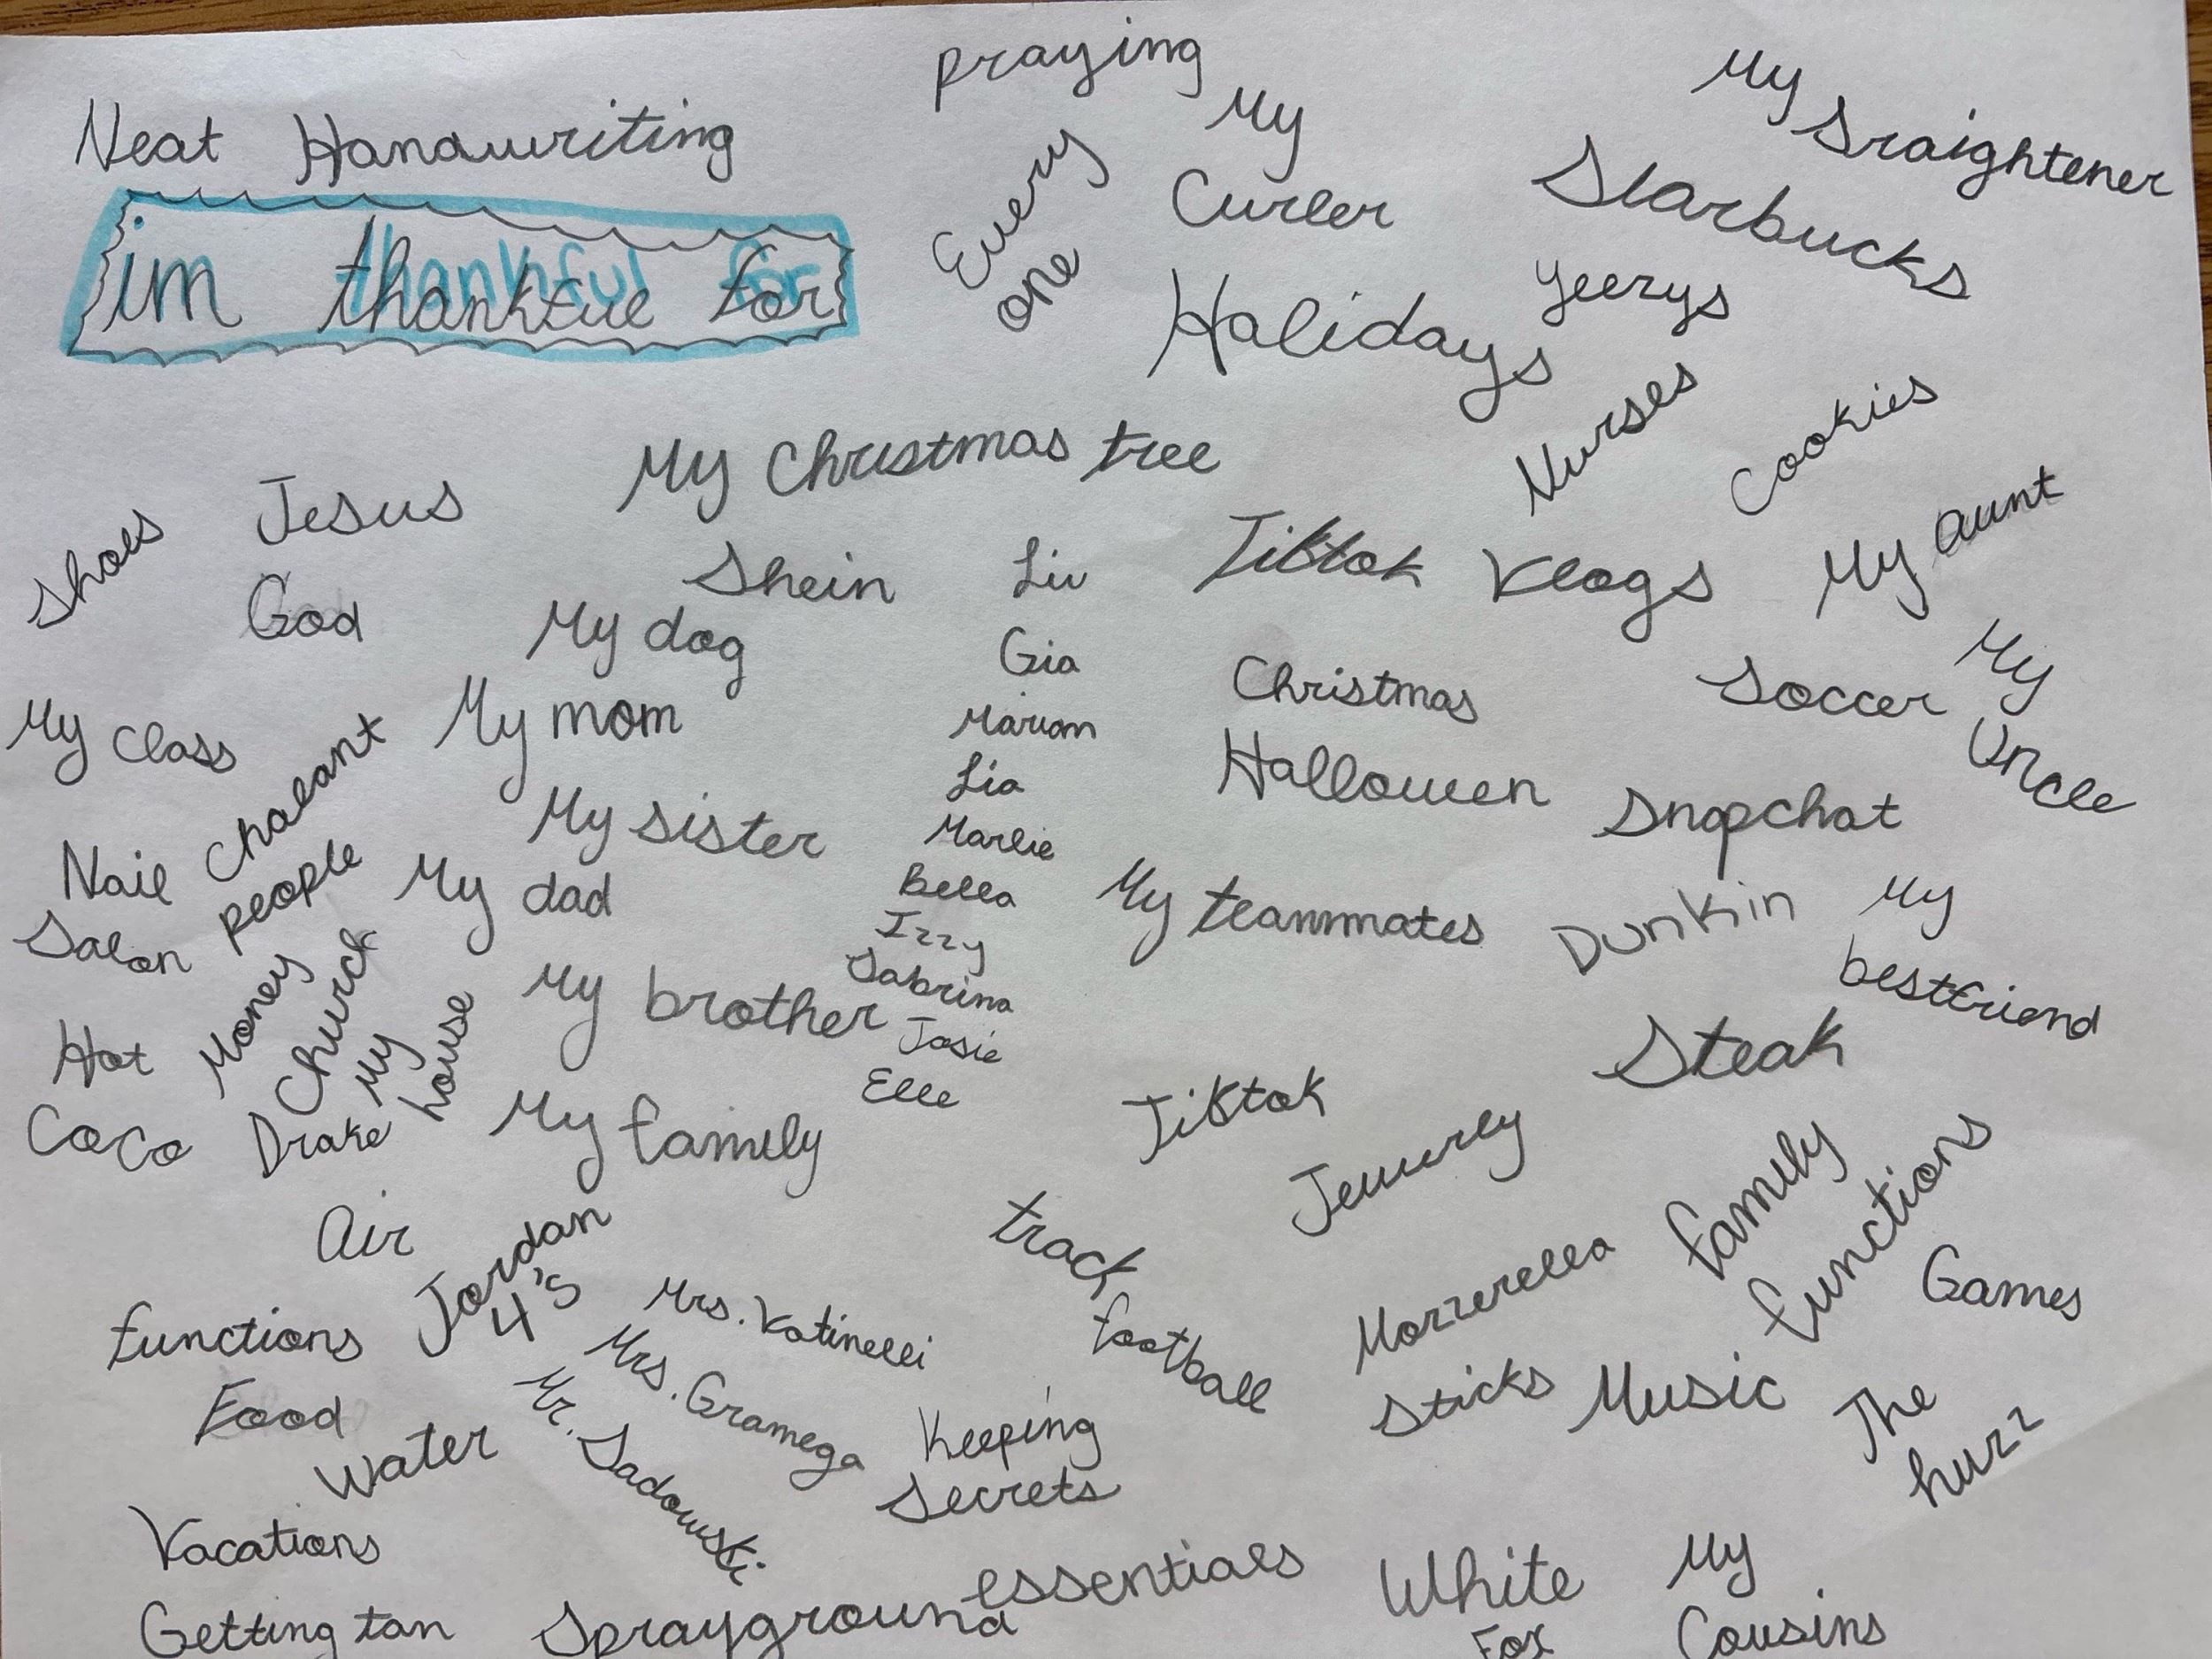 Neat Handwriting
im thankful for
praying
Every
one
My
Curler
Halidays
My
Sraightener
Starbucks
Yeezys
Nurses
Cookies
My Christmas tree
Jesus
God
Shoes
Shein
My dog
My mom
My sister
My dad
My brother
My family
Liv
Gia
Mariam
Lia
Marlie
Bella
Izzy
Sabrina
Josie
Elle
Tiktok Vlogs
My aunt
My
Uncle
Christmas
Halloween
Soccer
Snapchat
My teammates
Dunkin
My
bestfriend
My Class
Chalant
people
Nail
Salon
Money
Church
My
house
Hot
CoCo
Drake
Air
Jordan
4's
Tiktok
Steak
Jewurly
track
football
Mozzerella
Sticks
family
functions
Games
Music
The
huzz
functions
Food
Water
Mrs. Vatinelli
Mrs. Gramega
Mr. Sadowski
Keeping
Secrets
Vacations
Getting tan
Sprayground
essentials
White
Fox
My
Cousins